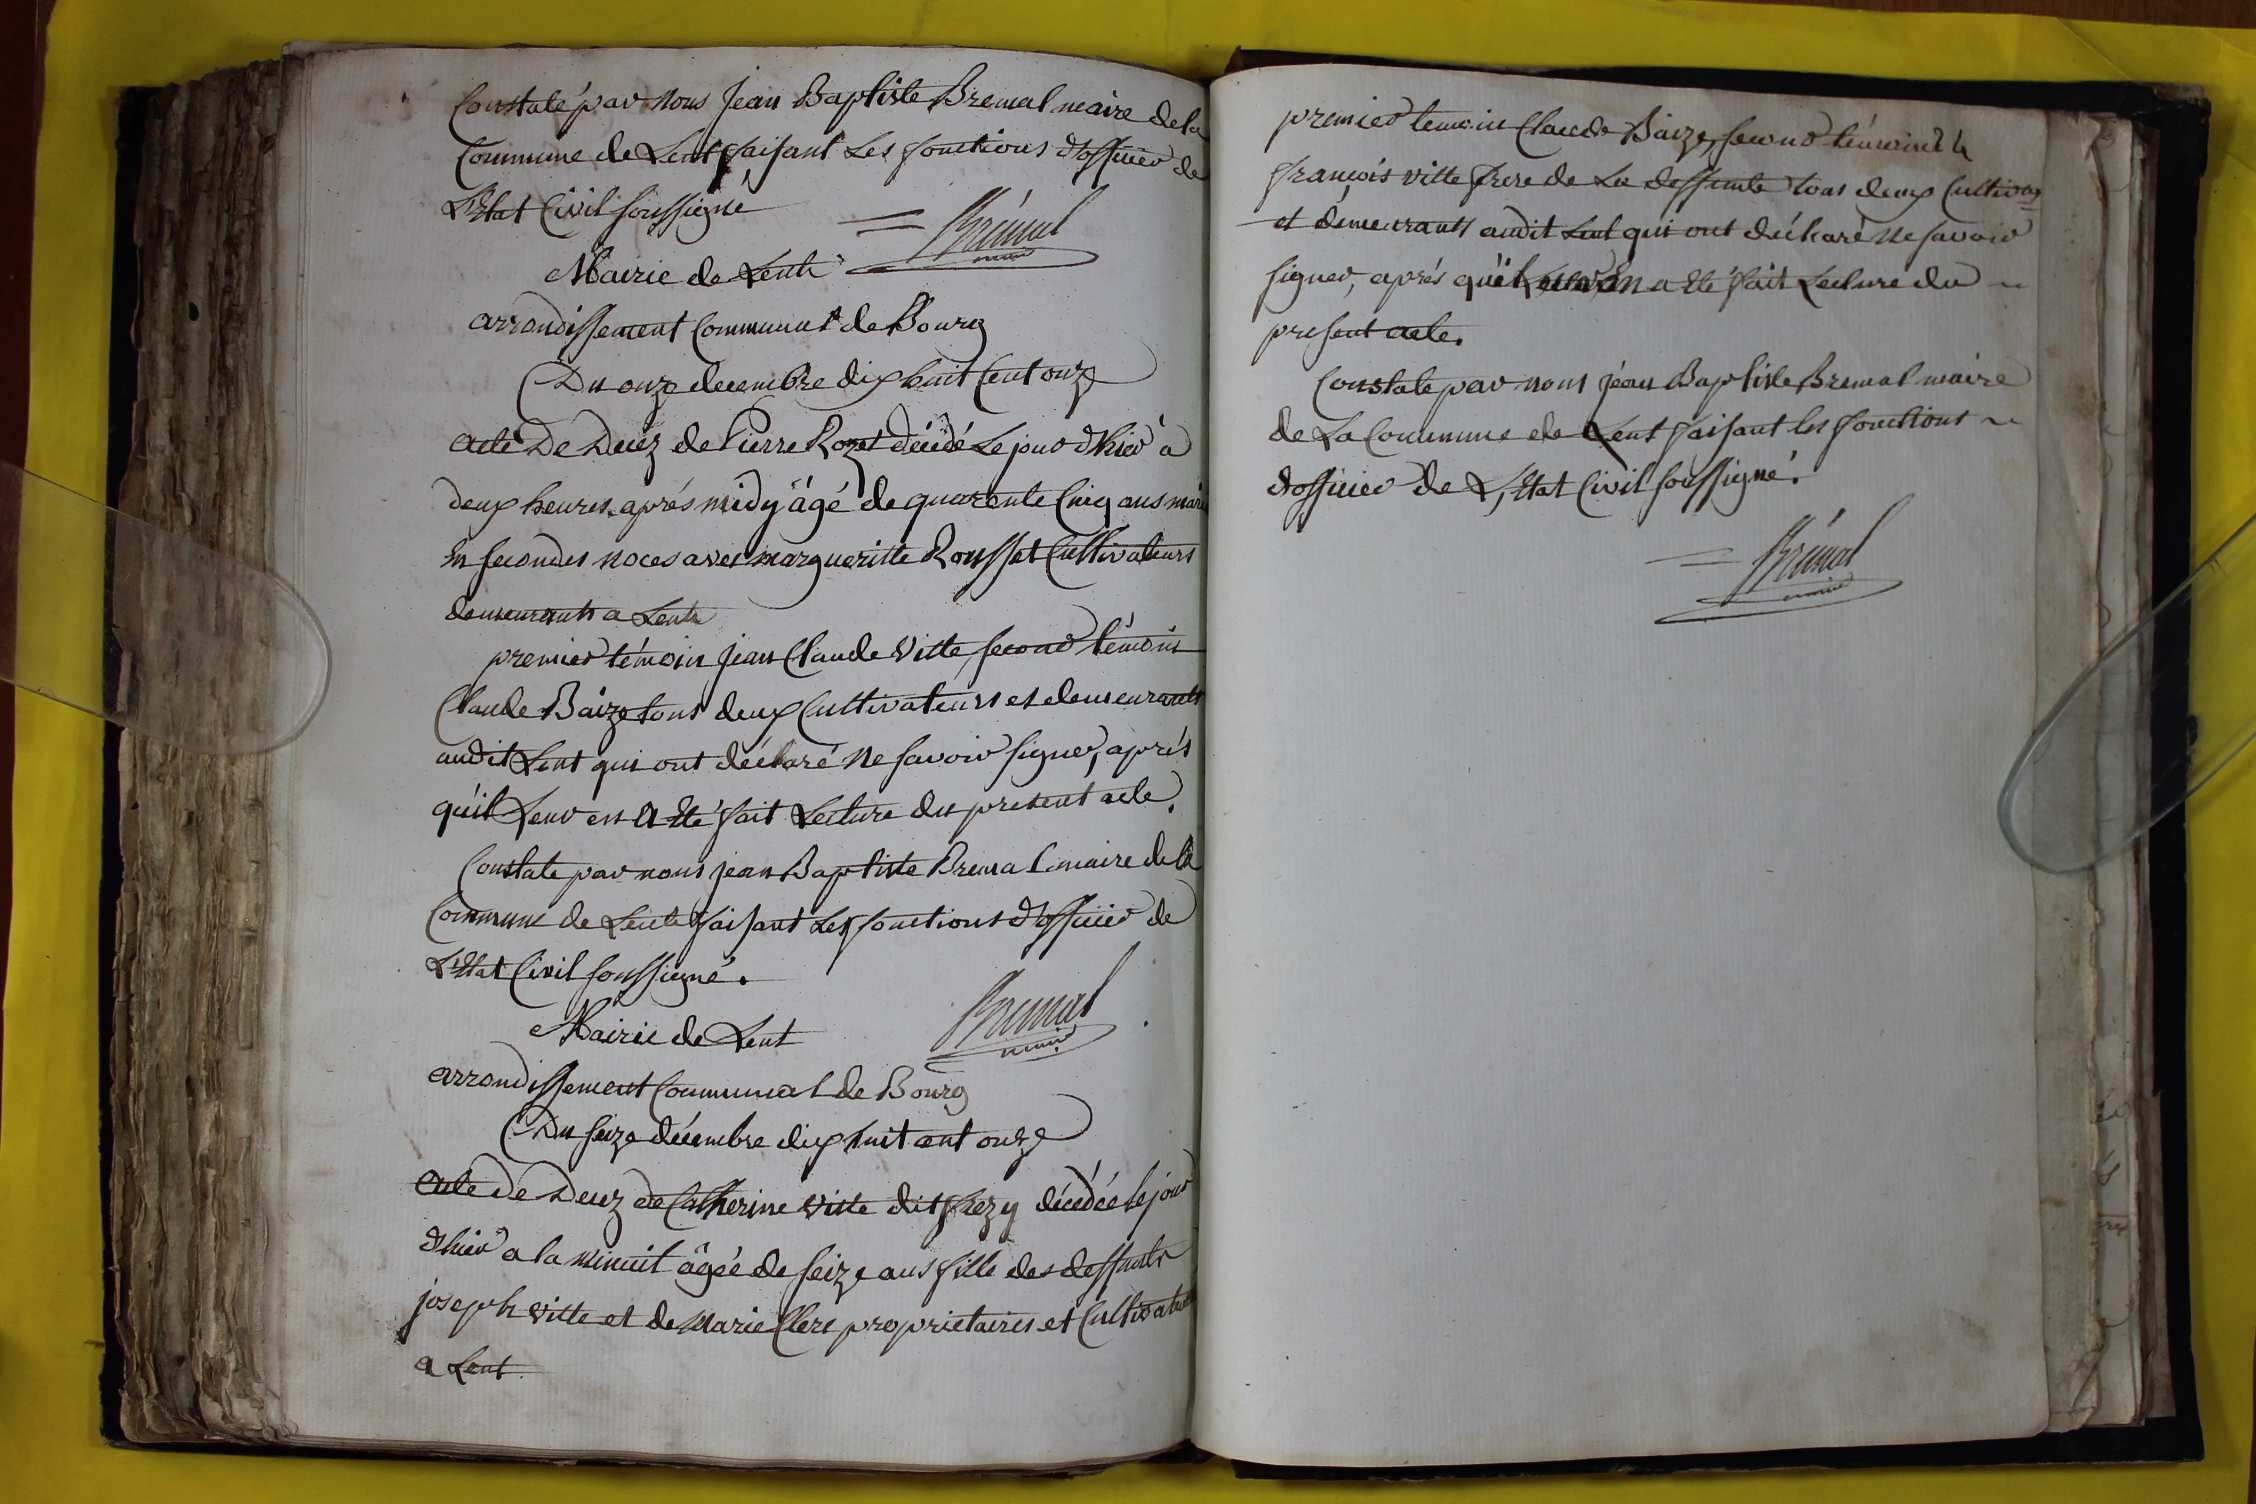 Constaté par nous Jean Baptiste Bremal maire de la
Commune de Lent faisant Les fonctions d'officier de
L'Etat Civil soussigné
Brémal
maire
Mairie de Lent
arrondissement Communal de Bourg
Du onze decembre dix huit Cent onze
acte De Decez de Pierre Rozet décédé Le jour d'hier à
deux heures après midy âgé de quarente Cinq ans marié
En secondes noces avec margueritte Rousset Cultivateurs
demeurants a Lent
premier témoin Jean Claude Vitte, second témoin
Claude Baize tous deux Cultivateurs et demeurants
audit Lent qui ont déclaré Ne savoir signer, après
qu'il Leur en A Eté fait Lecture du present acte.
Constate par nous jean Baptiste Bremal maire de la
Commune de Lent faisant Les fonctions d'officier de
L'Etat Civil soussigné.
Bremal
maire
Mairie de Lent
arrondissement Communal de Bourg
Du seize décembre dix huit cent onze
Acte de Decez de Catherine Vitte dit décédée le jour
d'hier a la minuit âgée de seize ans fille des deffunts
joseph vitte et de Marie Clerc proprietaires et Cultivateurs
a Lent
premier temoin Claude Baize, second témoin
françois vitte frere de La deffunte tous deux Cultivateurs
et demeurants audit Lent qui ont déclaré Ne savoir
signer, après qu'il Leur En a Eté fait Lecture du
present acte.
Constate par nous jean Baptiste Bremal maire
de La Commune de Lent faisant les fonctions
d'officier de L'Etat Civil soussigné.
Brémal
maire